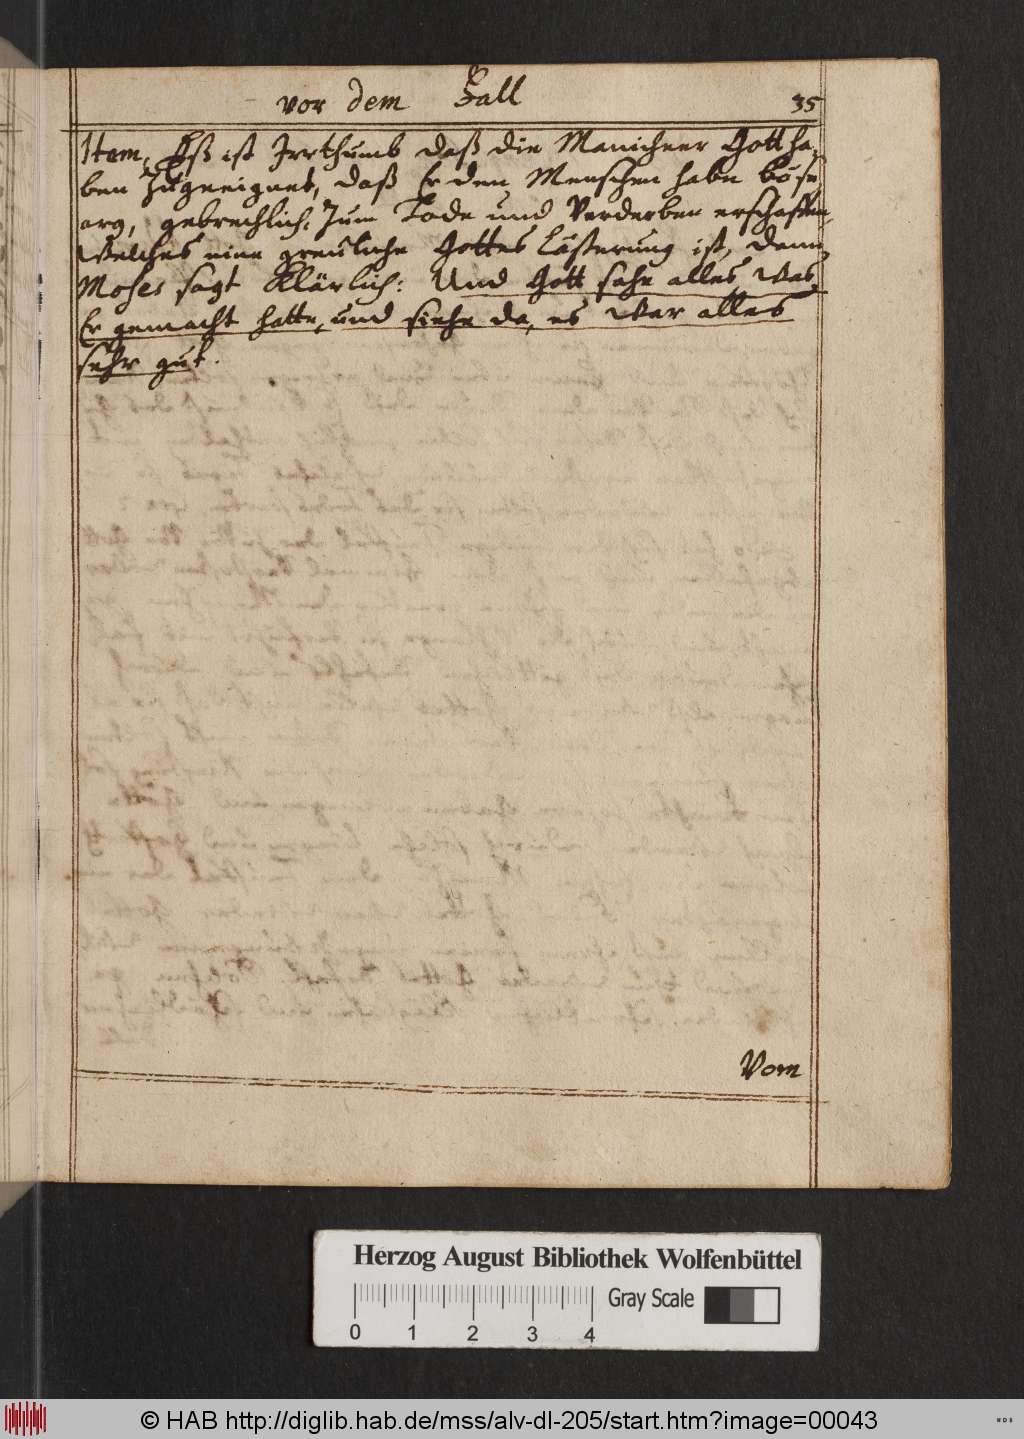 vor dem Fall
35
Item, Eß ist Irrthumb daß die Manicheer Gott ha,
ben Zugeeignet, daß Er den Menschen habe böse,
arg, gebrechlich, Zum Tode und Verderben erschaffen,
Welches eine greuliche Gottes Lästerung ist, denn
Moses sagt Klärlich: Und Gott sahe alles, was
Er gemacht hatte, und siehe da, es war alles
sehr gut.
Vom
Herzog August Bibliothek Wolfenbüttel
Gray Scale
0 1 2 3 4
© HAB http://diglib.hab.de/mss/alv-dl-205/start.htm?image=00043